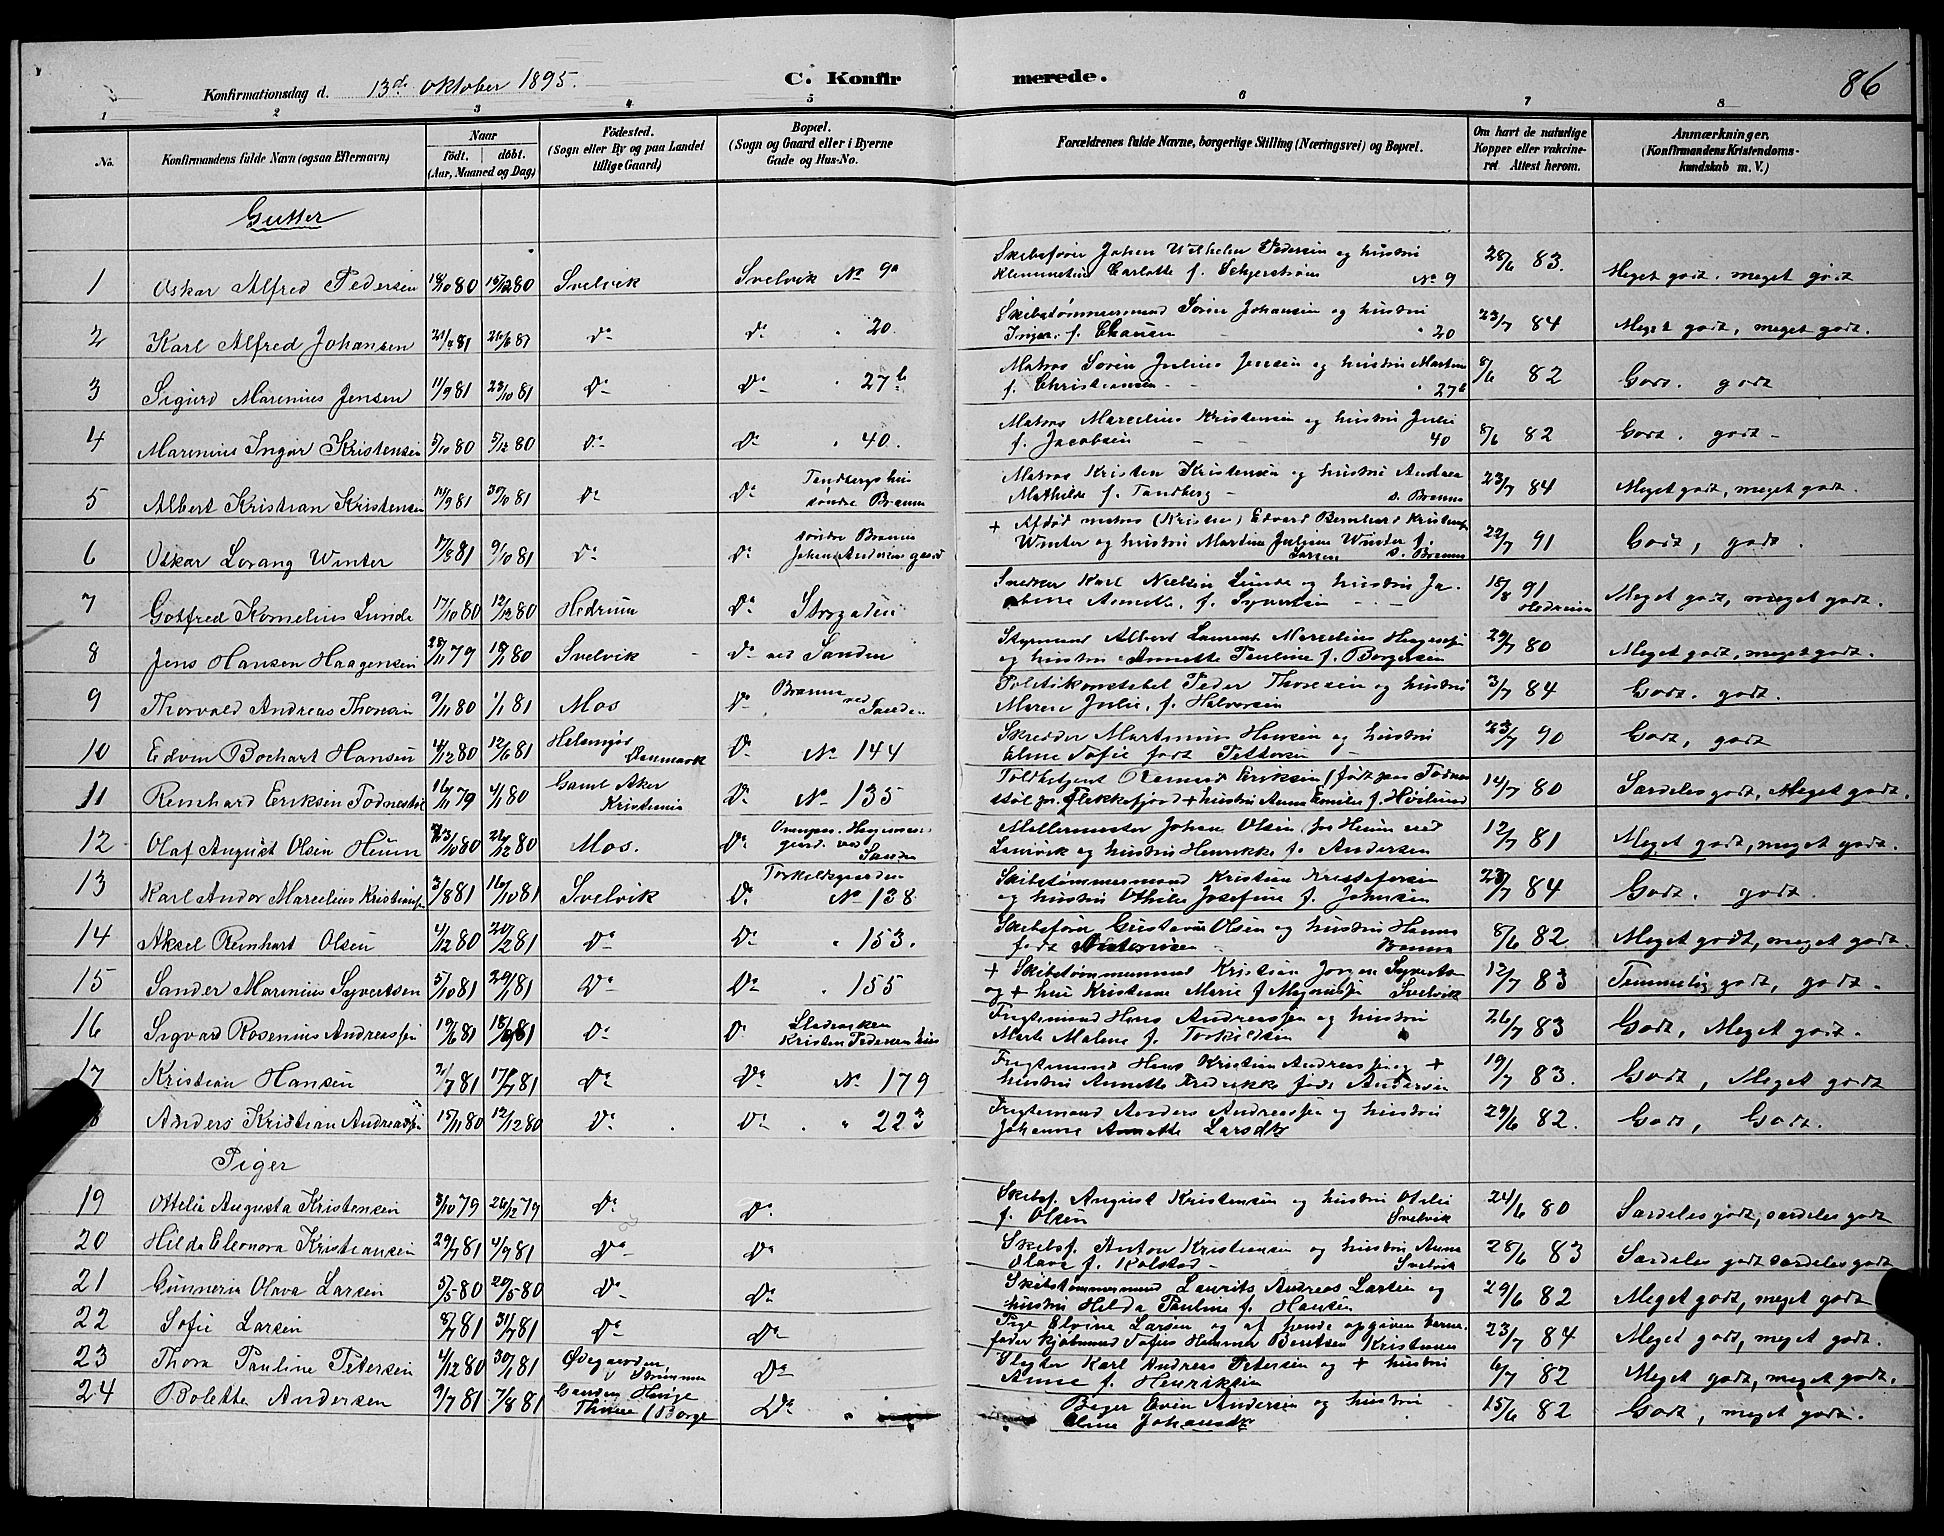 Konfirmationsdag d. 13de Oktober 1895. C. Konfirmerede. 86
1 2 3 4 5 6 7 8
No. Konfirmandens fulde Navn (ogsaa Efternavn) Naar født, døbt. (Aar, Maaned og Dag) Fødested. (Sogn eller By og paa Landet tillige Gaard) Bopæl. (Sogn og Gaard eller i Byerne Gade og Hus-No. Forældrenes fulde Navne, borgerlige Stilling (Næringsvei) og Bopæl. Om havt de naturlige Kopper eller vakcineret. Attest herom. Anmærkninger, (Konfirmandens Kristendomskundskab m. V.)
Gutter
1 Oskar Alfred Pedersen 80 80 Svelvik Svelvik No 9a Skibsfører Johan Wilhelm Pedersen og hustru
Klementine Carlotte f. No 9 28/6 83. Meget godt. meget godt
2 Karl Alfred Johansen 81 Do Do " 20. Skibstømmermand Søren Johansen og hustru
Inger f. " 20 23/7 84 Meget godt, meget godt.
3 Sigurd Marenius Jensen 11/9 81 23/10 81 Do Do " 27b Matros Søren Julius Jensen og hustru Martine
f. Christiansen - " 27b 8/6 82 Godt. godt
4 Marenius Ingvar Kristensen 5/10 80 5/12 80 Do Do " 40. Matros Marcelius Kristensen og hustru Julie
f. Jacobsen - - 40 8/6 82 Godt. godt -
5 Albert Kristian Kristensen 81 30/10 81 Do Do Tandbergs hus
søndre Brænna Matros Kristen Kristensen og hustru Andrea
Mathilde f. Tandberg - s. Brænna 23/7 84 Meget godt, meget godt.
6 Oskar Lorang Winter 17/8 81 9/10 81 Do Do søndre Brænna
Johan Andersens gaard + Afdød matros (Kristen) Edvard Bernhard
Winter og hustru Martine Juliane Winter f.
Larsen s. Brænna 22/7 91 Godt, godt.
7 Gotfred Kornelius Lunde 17/10 80 12/12 80 Hedrum Do Storgaden Snedker Karl Nielsen Lunde og hustru
Annette, f. Syvertsen - - 15/8 91
Hedrum Meget godt, meget godt.
8 Jens Hansen Haagensen 28/11 79 18/1 80 Svelvik Do ved Sanden Styrmand Albert Laurent Marcelius
og hustru Annette Pauline f. Borgersen 29/7 80 Meget godt, meget godt.
9 Thorvald Andreas Thoresen 9/11 80 1/1 81 Mos Do Brænna ved
Sanden Politikonstabel Peder Thoresen og hustru
Maren Julie, f. Halvorsen 3/7 84 Godt. godt.
10 Edvin Bochart Hansen 4/12 80 12/6 81 Helsingør
Danmark Do No 144 Skrædder Martinus Hansen og hustru
Sofie født Pettersen 23/7 90 Godt, godt
11 Reinhard Eriksen 16/11 79 4/1 80 Gaml. Aker
Kristiania Do No 135 Toldbetjent Eriksen (født paa
Flekkefjord + hustru Anna Emilie f. 14/7 80 Særdeles godt, Meget godt.
12 Olaf August Olsen Heum 80 80 Mos. Do
gaard. ved
Sanden Møllermester Johan Olsen Heum ved
og hustru Henrikke f. Andersen 12/7 81 Meget godt, meget godt.
13 Karl Andor Marcelius 3/8 81 16/10 81 Svelvik Do Torkeldsgaarden
No 138. Skibstømmermand Kristian Kristofersen
og hustru Othilie Josefine f. Johnsen 23/7 84 Godt. godt.
14 Aksel Reinhart Olsen 4/12 80 20/2 81 Do Do " 153. Skibsfører Gustavus Olsen og hustru Hanna
født - Brænna 8/6 82. Meget godt, meget godt.
15 Sander Marenius Syvertsen 5/10 81 29/1 81 Do Do " 155 + Skibstømmermand Kristian Jørgen
og + hus Kristiane Marie f Svelvik 12/7 83 Temmelig godt, godt.
16 Sigvard Rosenius Andreassen 19/6 81 81 Do Do
Kristen Pedersens hus Fragtemand Hans Andreassen og hustru
Marte Malene f. Torkildsen 26/7 83 Godt, Meget godt.
17 Kristian Hansen 2/7 81 17/7 81 Do Do No 179 Fragtemand Hans Kristian Andreassen og +
hustru Annette Fredrikke født Andersen 19/7 83. Godt, Meget godt
8 Anders Kristian Andreassen 15/11 80 12/12 80 Do Do " 223 Fragtemand Anders Andreassen og hustru
Johanne Annette Larsdtr 29/6 82. Godt, Godt.
Piger
19 Ottelie Augusta Kristensen 3/10 79 26/12 79 Do Do Skibsf. August Kristensen og hustru Otelie
f. Olsen Svelvik 24/6 80 Særdeles godt, særdeles godt
20 Hilda Eleonora Kristiansen 29/7 81 4/9 81 Do Do Skibsf. Anton Kristiansen og hustru Anna
Olava f. Kolstad - Svelvik 28/6 83 Særdeles godt særdeles godt
21 Gunneria Olava Larsen 5/5 80 20/5 80 Do Do Skibstømmermand Laurits Andreas Larsen og
hustru Hilda Pauline f. Hansen 29/6 82 Meget godt, meget godt
22 Sofie Larsen 8/7 81 31/7 81 Do Do Pige Elvine Larsen og af hende opgiven barnefader
kjøbmand Tofius Hammer Bentsen Kristiania 23/7 84 Meget godt, meget godt.
23 Thora Pauline Petersen 4/12 80 30/1 81 Ødegaarden,
Strømmen Do Slagter Karl Andreas Petersen og + hustru
Anne f. Henriksen 6/7 82 Meget godt, meget godt.
24 Bolette Andersen 9/7 81 7/8 81
Thune i Borge Do " Bager Even Andersen og hustru
Johansdtr 15/6 82 Godt, meget godt.